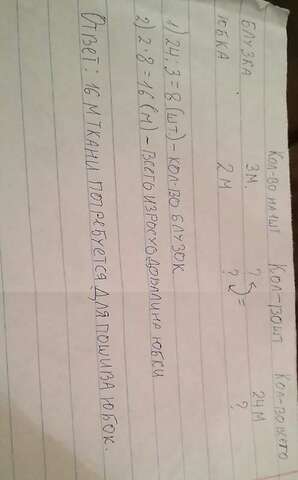 Кол-во на 1 шт Кол-во шт Кол-во всего
БЛУЗКА 3 м. ? 24 м
ЮБКА 2 м ? = ?
1) 24 : 3 = 8 (шт) - кол-во блузок
2) 2 · 8 = 16 (м) - всеть израсходовали на юбки
Ответ: 16 м ткани потребуется для пошива юбок.